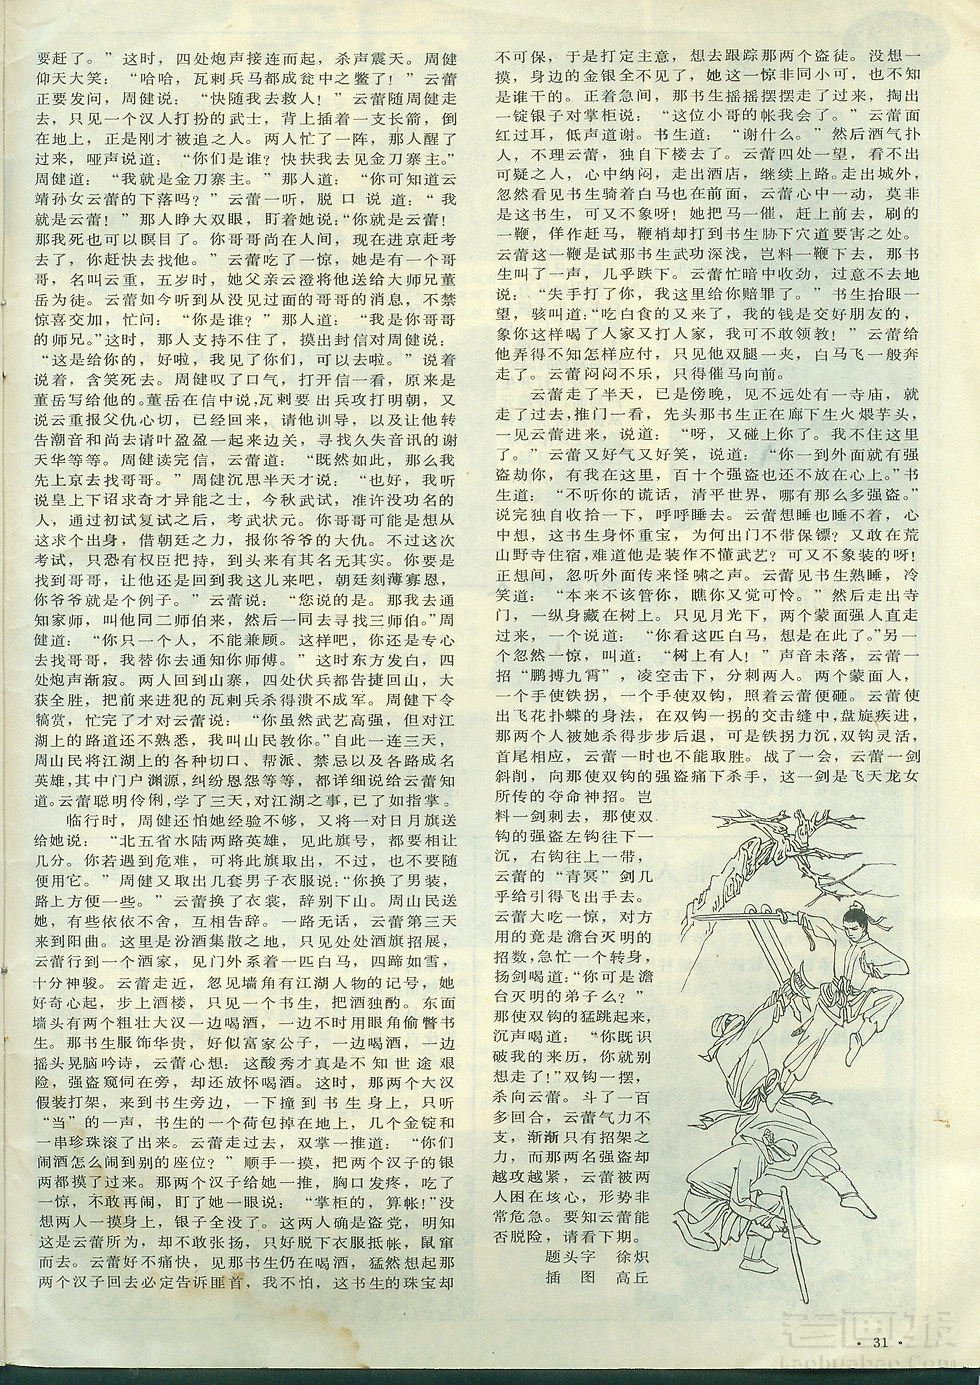 要赶了。”这时，四处炮声接连而起，杀声震天。周健
仰天大笑：“哈哈，瓦剌兵马都成瓮中之鳖了！”云蕾
正要发问，周健说：“快随我去救人！”云蕾随周健走
去，只见一个汉人打扮的武士，背上插着一支长箭，倒
在地上，正是刚才被追之人。两人忙了一阵，那人醒了
过来，哑声说道：“你们是谁？快扶我去见金刀寨主。”
周健道：“我就是金刀寨主。”那人道：“你可知道云
靖孙女云蕾的下落吗？”云蕾一听，脱口说道：“我
就是云蕾！”那人睁大双眼，盯着她说：“你就是云蕾！
那我死也可以瞑目了。你哥哥尚在人间，现在进京赶考
去了，你赶快去找他。”云蕾吃了一惊，她是有一个哥
哥，名叫云重，五岁时，她父亲云澄将他送给大师兄董
岳为徒。云蕾如今听到从没见过面的哥哥的消息，不禁
惊喜交加，忙问：“你是谁？”那人道：“我是你哥哥
的师兄。”这时，那人支持不住了，摸出封信对周健说：
“这是给你的，好啦，我见了你们，可以去啦。”说着
说着，含笑死去。周健叹了口气，打开信一看，原来是
董岳写给他的。董岳在信中说，瓦剌要出兵攻打明朝，又
说云重报父仇心切，已经回来，请他训导，以及让他转
告潮音和尚去请叶盈盈一起来边关，寻找久失音讯的谢
天华等等。周健读完信，云蕾道：“既然如此，那么我
先上京去找哥哥。”周健沉思半天才说：“也好，我听
说皇上下诏求奇才异能之士，今秋武试，准许没功名的
人，通过初试复试之后，考武状元。你哥哥可能是想从
这求个出身，借朝廷之力，报你爷爷的大仇。不过这次
考试，只恐有权臣把持，到头来有其名无其实。你要是
找到哥哥，让他还是回到我这儿来吧，朝廷刻薄寡恩，
你爷爷就是个例子。”云蕾说：“您说的是。那我去通
知家师，叫他同二师伯来，然后一同去寻找三师伯。”周
健道：“你只一个人，不能兼顾。这样吧，你还是专心
去找哥哥，我替你去通知你师傅。”这时东方发白，四
处炮声渐寂。两人回到山寨，四处伏兵都告捷回山，大
获全胜，把前来进犯的瓦剌兵杀得溃不成军。周健下令
犒赏，忙完了才对云蕾说：“你虽然武艺高强，但对江
湖上的路道还不熟悉，我叫山民教你。”自此一连三天，
周山民将江湖上的各种切口、帮派、禁忌以及各路成名
英雄，其中门户渊源，纠纷恩怨等等，都详细说给云蕾知
道。云蕾聪明伶俐，学了三天，对江湖之事，已了如指掌。
临行时，周健还怕她经验不够，又将一对日月旗送
给她说：“北五省水陆两路英雄，见此旗号，都要相让
几分。你若遇到危难，可将此旗取出，不过，也不要随
便用它。”周健又取出几套男子衣服说：“你换了男装，
路上方便一些。”云蕾换了衣裳，辞别下山。周山民送
她，有些依依不舍，互相告辞。一路无话，云蕾第三天
来到阳曲。这里是汾酒集散之地，只见处处酒旗招展，
云蕾行到一个酒家，见门外系着一匹白马，四蹄如雪，
十分神骏。云蕾走近，忽见墙角有江湖人物的记号，她
好奇心起，步上酒楼，只见一个书生，把酒独酌。东面
墙头有两个粗壮大汉一边喝酒，一边不时用眼角偷瞥书
生。那书生服饰华贵，好似富家公子，一边喝酒，一边
摇头晃脑吟诗，云蕾心想：这酸秀才真是不知世途艰
险，强盗窥伺在旁，却还放怀喝酒。这时，那两个大汉
假装打架，来到书生旁边，一下撞到书生身上，只听
“当”的一声，书生的一个荷包掉在地上，几个金锭和
一串珍珠滚了出来。云蕾走过去，双掌一推道：“你们
闹酒怎么闹到别的座位？”顺手一摸，把两个汉子的银
两都摸了过来。那两个汉子给她一推，胸口发疼，吃了
一惊，不敢再闹，盯了她一眼说：“掌柜的，算帐！”没
想两人一摸身上，银子全没了。这两人确是盗党，明知
这是云蕾所为，却不敢张扬，只好脱下衣服抵帐，鼠窜
而去。云蕾好不痛快，见那书生仍在喝酒，猛然想起那
两个汉子回去必定告诉匪首，我不怕，这书生的珠宝却
不可保，于是打定主意，想去跟踪那两个盗徒。没想一
摸，身边的金银全不见了，她这一惊非同小可，也不知
是谁干的。正着急间，那书生摇摇摆摆走了过来，掏出
一锭银子对掌柜说：“这位小哥的帐我会了。”云蕾面
红过耳，低声道谢。书生道：“谢什么。”然后酒气扑
人，不理云蕾，独自下楼去了。云蕾四处一望，看不出
可疑之人，心中纳闷，走出酒店，继续上路。走出城外，
忽然看见书生骑着白马也在前面，云蕾心中一动，莫非
是这书生，可又不象呀！她把马一催，赶上前去，刷的
一鞭，佯作赶马，鞭梢却打到书生胁下穴道要害之处。
云蕾这一鞭是试那书生武功深浅，岂料一鞭下去，那书
生叫了一声，几乎跌下。云蕾忙暗中收劲，过意不去地
说：“失手打了你，我这里给你赔罪了。”书生抬眼一
望，骇叫道：“吃白食的又来了，我的钱是交好朋友的，
象你这样喝了人家又打人家，我可不敢领教！”云蕾给
他弄得不知怎样应付，只见他双腿一夹，白马飞一般奔
走了。云蕾闷闷不乐，只得催马向前。
云蕾走了半天，已是傍晚，见不远处有一寺庙，就
走了过去，推门一看，先头那书生正在廊下生火煨芋头，
一见云蕾进来，说道：“呀，又碰上你了。我不住这里
了。”云蕾又好气又好笑，说道：“你一到外面就有强
盗劫你，有我在这里，百十个强盗也还不放在心上。”书
生道：“不听你的谎话，清平世界，哪有那么多强盗。”
说完独自收拾一下，呼呼睡去。云蕾想睡也睡不着，心
中想，这书生身怀重宝，为何出门不带保镖？又敢在荒
山野寺住宿，难道他是装作不懂武艺？可又不象装的呀！
正想间，忽听外面传来怪啸之声。云蕾见书生熟睡，冷
笑道：“本来不该管你，瞧你又觉可怜。”然后走出寺
门，一纵身藏在树上。只见月光下，两个蒙面强人直走
过来，一个说道：“你看这匹白马，想是在此了。”另一
个忽然一惊，叫道：“树上有人！”声音未落，云蕾一
招“鹏搏九霄”，凌空击下，分刺两人。两个蒙面人，
一个手使铁拐，一个手使双钩，照着云蕾便砸。云蕾使
出飞花扑蝶的身法，在双钩一拐的交击缝中，盘旋疾进，
那两个人被她杀得步步后退，可是铁拐力沉，双钩灵活，
首尾相应，云蕾一时也不能取胜。战了一会，云蕾一剑
斜削，向那使双钩的强盗痛下杀手，这一剑是飞天龙女
所传的夺命神招。岂
料一剑刺去，那使双
钩的强盗左钩往下一
沉，右钩往上一带，
云蕾的“青冥”剑几
乎给引得飞出手去。
云蕾大吃一惊，对方
用的竟是澹台灭明的
招数，急忙一个转身，
扬剑喝道：“你可是澹
台灭明的弟子么？”
那使双钩的猛跳起来，
沉声喝道：“你既识
破我的来历，你就别
想走了！”双钩一摆，
杀向云蕾。斗了一百
多回合，云蕾气力不
支，渐渐只有招架之
力，而那两名强盗却
越攻越紧，云蕾被两
人困在垓心，形势非
常危急。要知云蕾能
否脱险，请看下期。
题头字　徐炽
插　图　高丘
·31·
老画报
laohuabao.com